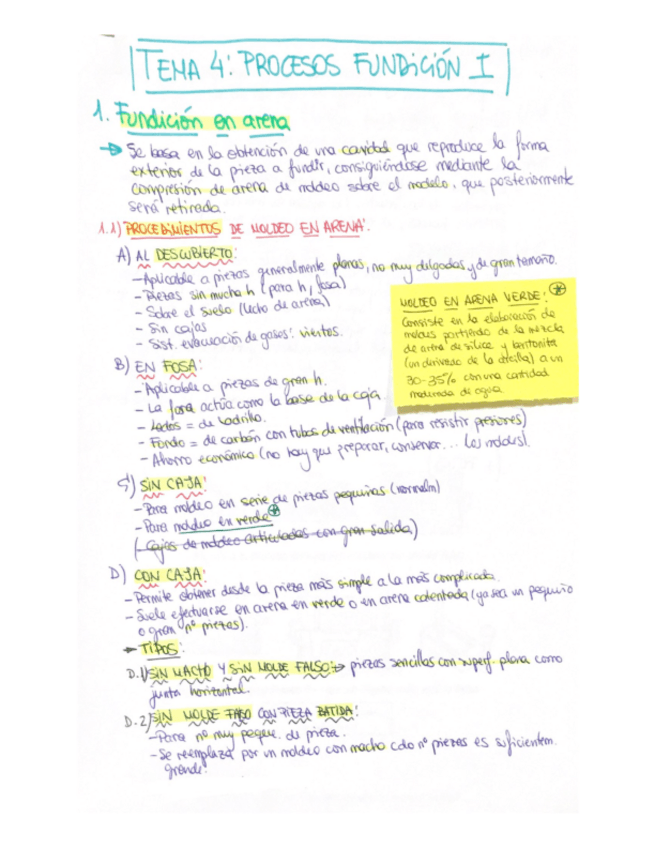 TEMA 4: PROCESOS FUNDICIÓN I
1. Fundición en arena
→ Se basa en la obtención de una cavidad que reproduce la forma
exterior de la pieza a fundir, consiguiéndose mediante la
compresión de arena de moldeo sobre el modelo, que posteriormente
será retirada.
1.1) PROCEDIMIENTOS DE MOLDEO EN ARENA:
A) AL DESCUBIERTO:
- Aplicable a piezas generalmente planas, no muy delgadas y de gran tamaño.
- Piezas sin mucha h (para h ↑, fosa)
- Sobre el suelo (lecho de arena)
- Sin cajas
- Sist. evacuación de gases: vientos.
MOLDEO EN ARENA VERDE: *
Consiste en la elaboración de
moldes partiendo de la mezcla
de arena de sílice y bentonita
(un derivado de la arcilla) a un
30-35% con una cantidad
moderada de agua
B) EN FOSA:
- Aplicable a piezas de gran h.
- La fosa actúa como la base de la caja
- Lados = de ladrillo.
- Fondo = de carbón con tubos de ventilación (para resistir presiones)
- Ahorro económico (no hay que preparar, conservar... los moldes).
C) SIN CAJA:
- Para moldeo en serie de piezas pequeñas (normalm)
- Para moldeo en verde *
(- Cajas de moldeo articuladas con gran salida)
D) CON CAJA:
- Permite obtener desde la pieza más simple a la más complicada.
- Suele efectuarse en arena en verde o en arena calentada (ya sea un pequeño
o gran nº piezas).
→ TIPOS:
D.1) SIN MACHO Y SIN MOLDE FALSO: → piezas sencillas con superf. plana como
junta horizontal.
D.2) SIN MOLDE FALSO CON PIEZA BATIDA:
- Para nº muy peque. de pieza.
- Se reemplaza por un moldeo con macho cdo nº piezas es suficientem.
grande.